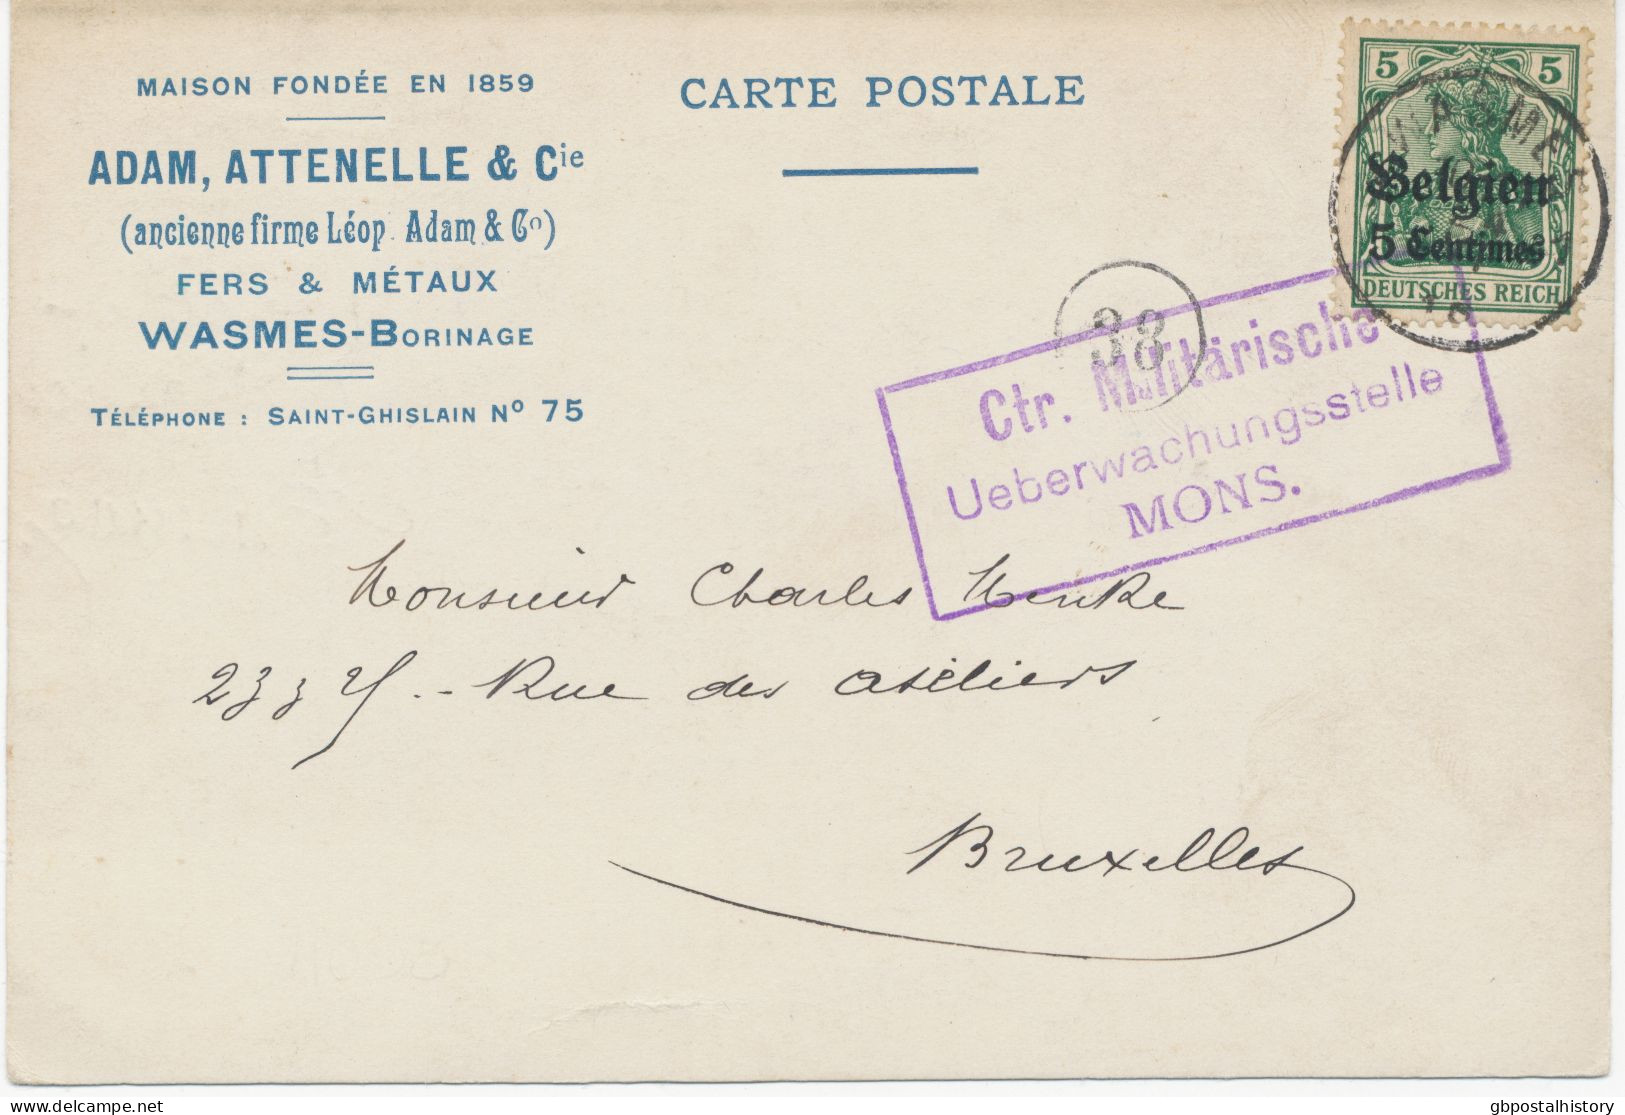 MAISON FONDÉE EN 1859
ADAM, ATTENELLE & Cie
(ancienne firme Léop. Adam & Co)
FERS & MÉTAUX
WASMES-BORINAGE
TÉLÉPHONE : SAINT-GHISLAIN No 75
CARTE POSTALE
5 5
WASMES
Belgien
5 Centimes
DEUTSCHES REICH
38
Ctr. Militärische
Ueberwachungsstelle
MONS.
Monsieur Charles Menke
Rue des ateliers
Bruxelles
delcampe.net
gbpostalhistory